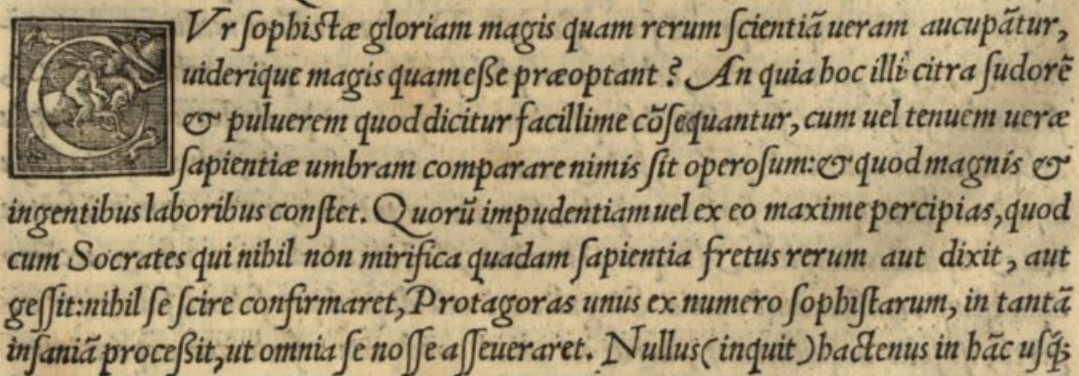 CVr sophistæ gloriam magis quam rerum scientiã ueram aucupãtur,
uiderique magis quam eße præoptant? An quia hoc illi citra sudorẽ
& puluerem quod dicitur facillime cõsequantur, cum uel tenuem ueræ
sapientiæ umbram comparare nimis sit operosum: & quod magnis &
ingentibus laboribus constet. Quorũ impudentiam uel ex eo maxime percipias, quod
cum Socrates qui nihil non mirifica quadam sapientia fretus rerum aut dixit, aut
gessit: nihil se scire confirmaret, Protagoras unus ex numero sophistarum, in tantã
insaniã proceßit, ut omnia se nosse asseueraret. Nullus (inquit) hactenus in hãc usq;